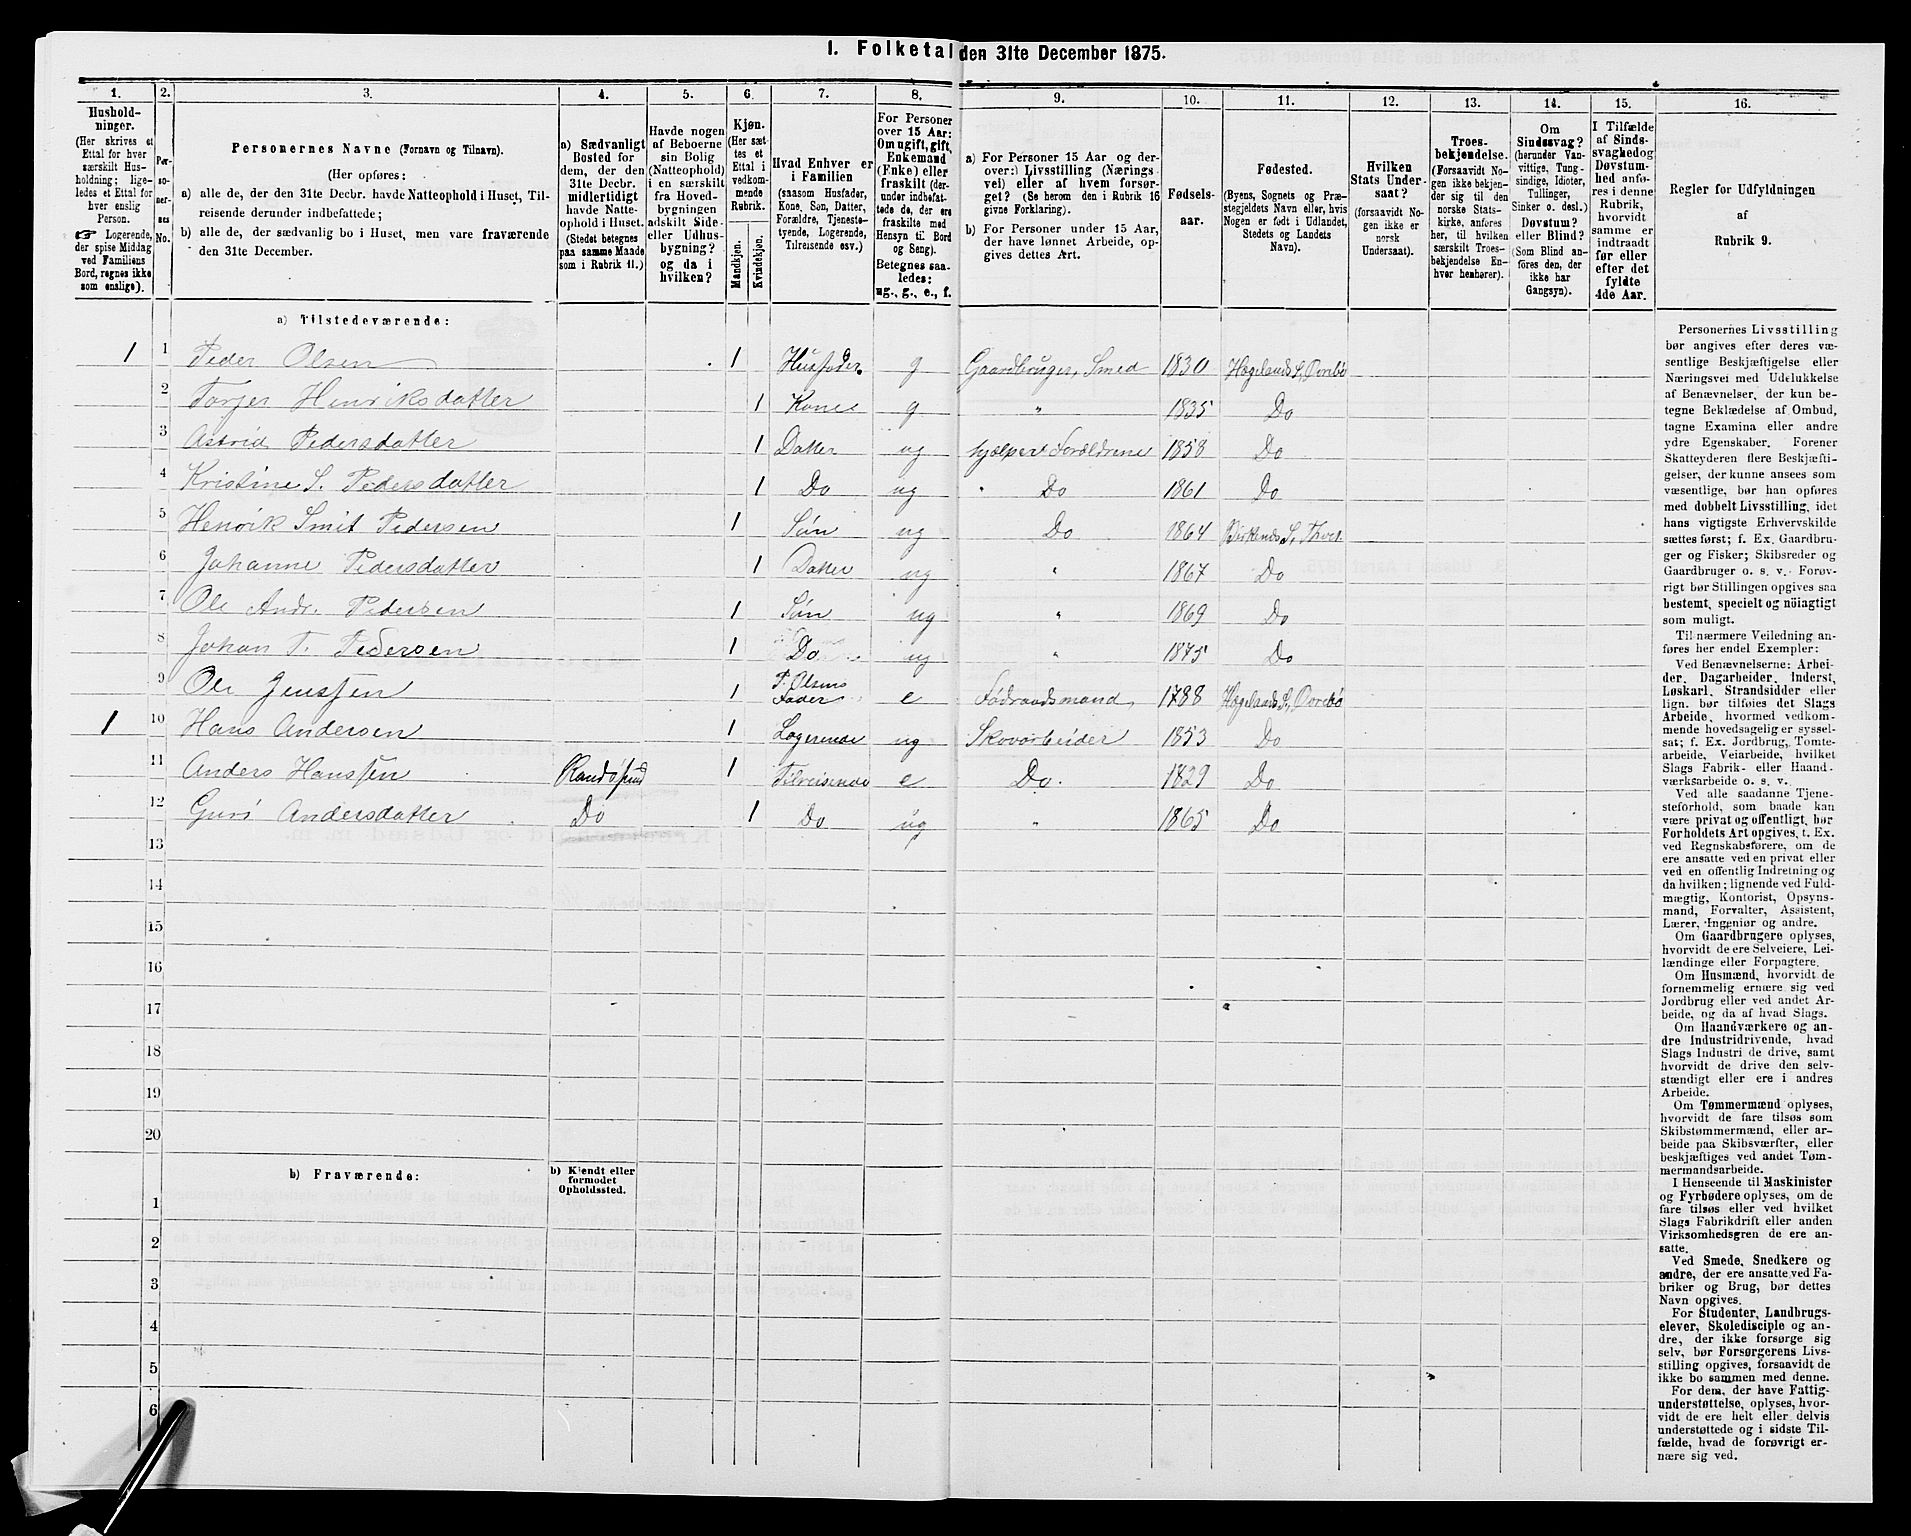 1. Folketal den 31te December 1875.
1. 2. 3. 4. 5. 6. 7. 8. 9. 10. 11. 12. 13. 14. 15. 16.
Husholdninger.
(Her skrives et
Ettal for hver
særskilt Hus-
holdning; lige-
ledes et Ettal for
hver enslig
Person.
☞ Logerende,
der spise Middag
ved Familiens
Bord, regnes ikke
som enslige).
Personernes No.
Personernes Navne (Fornavn og Tilnavn).
(Her opføres:
a) alle de, der den 31te Decbr. havde Natteophold i Huset, Til-
reisende derunder indbefattede;
b) alle de, der sædvanlig bo i Huset, men vare fraværende
den 31te December.
a) Sædvanligt
Bosted for
dem, der den
31te Decbr.
midlertidigt
havde Natte-
ophold i Huset.
(Stedet betegnes
paa samme Maade
som i Rubrik 11.)
Havde nogen
af Beboerne
sin Bolig
(Natteophold)
i en særskilt
fra Hoved-
bygningen
adskilt Side-
eller Udhus-
bygning?
og da i
hvilken?
Kjøn.
(Her sæt-
tes et
Ettal i
vedkom-
mende
Rubrik.
Mandkjøn.
Kvindekjøn.
Hvad Enhver er
i Familien
(saasom Husfader,
Kone, Søn, Datter,
Forældre, Tjeneste-
tyende, Logerende,
Tilreisende osv.)
For Personer
over 15 Aar:
Om ugift, gift,
Enkemand
(Enke) eller
fraskilt (der-
under indbefat-
tede de, der ere
fraskilte med
Hensyn til Bord
og Seng).
Betegnes saa-
ledes:
ug., g., e., f.
a) For Personer 15 Aar og der-
over:) Livsstilling (Nærings-
vei) eller af hvem forsør-
get? (Se herom den i Rubrik 16
givne Forklaring).
b) For Personer under 15 Aar,
der have lønnet Arbeide, op-
gives dettes Art.
Fødsels-
aar.
Fødested.
(Byens, Sognets og Præ-
stegjeldets Navn eller, hvis
Nogen er født i Udlandet,
Stedets og Landets
Navn).
Hvilken
Stats Under-
saat?
(forsaavidt No-
gen ikke er
norsk
Undersaat).
Troes-
bekjendelse.
(Forsaavidt No-
gen ikke bekjen-
der sig til den
norske Stats-
kirke, anføres
her, til hvilken
særskilt Troes-
bekjendelse En-
hver henhører).
Om
Sindssvag?
(herunder Van-
vittige, Tung-
sindige, Idioter,
Tullinger,
Sinker o. desl.)
Døvstum?
eller Blind?
(Som Blind an-
føres den, der
ikke har
Gangsyn).
I Tilfælde
af Sinds-
svaghed og
Døvstum-
hed anfø-
res i denne
Rubrik,
hvorvidt
samme er
indtraadt
før eller
efter det
fyldte
4de Aar.
Regler for Udfyldningen
af
Rubrik 9.
a) Tilstedeværende:
1 1 Peder Olsen 1 Husfader g Gaardbruger, Smed 1830 Hægelands S, Øvrebø
2 Torjer Henriksdatter 1 Kone g " 1835 Do
3 Astrid Pedersdatter 1 Datter ug hjælper Forældrene 1858 Do
4 Kristine S. Pedersdatter 1 Do ug Do 1861 Do
5 Henrik Smit Pedersen 1 Søn ug Do 1864 Birkenes S, Tveit
6 Johanne Pedersdatter 1 Datter ug " 1867 Do
7 Ole Andr. Pedersen 1 Søn ug " 1869 Do
8 Johan T. Pedersen 1 Do ug " 1875 Do
9 Ole Jenssen 1 P. Olsens Fader e Føderaadsmand 1788 Hægelands S, Øvrebø
1 10 Hans Andersen 1 Logerende ug Skovarbeider 1853 Do
11 Anders Hanssen Randøsund 1 Tilreisende e Do. 1829 Do
12 Guri Andersdatter Do 1 Do ug " 1865 Do
13
14
15
16
17
18
19
20
b) Fraværende:
b) Kjendt eller
formodet
Opholdssted.
1
2
3
4
5
6
Personernes Livsstilling
bør angives efter deres væ-
sentlige Beskjæftigelse eller
Næringsvei med Udelukkelse
af Benævnelser, der kun be-
tegne Beklædelse af Ombud,
tagne Examina eller andre
ydre Egenskaber. Forener
Skatteyderen flere Beskjæfti-
gelser, der kunne ansees som
væsentlige, bør han opføres
med dobbelt Livsstilling, idet
hans vigtigste Erhvervskilde
sættes først; f. Ex. Gaardbru-
ger og Fisker; Skibsreder og
Gaardbruger o. s. v. Forøv-
rigt bør Stillingen opgives saa
bestemt, specielt og nöiagtigt
som muligt.
Til nærmere Veiledning an-
føres her endel Exempler:
Ved Benævnelserne: Arbei-
der, Dagarbeider, Inderst,
Løskarl, Strandsidder eller
lign. bør tilføies det Slags
Arbeide, hvormed vedkom-
mende hovedsagelig er syssel-
sat; f. Ex. Jordbrug, Tomte-
arbeide, Veiarbeide, hvilket
Slags Fabrik- eller Haand-
værksarbeide o. s. v.
Ved alle saadanne Tjene-
steforhold, som baade kan
være privat og offentligt, bør
Forholdets Art opgives, t. Ex.
ved Regnskabsførere, om de
ere ansatte ved en privat eller
ved en offentlig Indretning og
da hvilken; lignende ved Fuld-
mægtig, Kontorist, Opsyns-
mand, Forvalter, Assistent,
Lærer, Ingeniør og andre.
Om Gaardbrugere oplyses,
hvorvidt de ere Selveiere, Lei-
lændinge eller Forpagtere.
Om Husmænd, hvorvidt de
fornemmelig ernære sig ved
Jordbrug eller ved andet Ar-
beide, og da af hvad Slags.
Om Haandværkere og an-
dre Industridrivende, hvad
Slags Industri de drive, samt
hvorvidt de drive den selv-
stændigt eller ere i andres
Arbeide.
Om Tømmermænd oplyses,
hvorvidt de fare tilsøs som
Skibstømmermænd, eller ar-
beide paa Skibsværfter, eller
beskjæftiges ved andet Tøm-
mermandsarbeide.
I Henseende til Maskinister
og Fyrbødere oplyses, om de
fare tilsøs eller ved hvilket
Slags Fabrikdrift eller anden
Virksomhedsgren de ere an-
satte.
Ved Smede, Snedkere og
andre, der ere ansatte ved Fa-
briker og Brug, bør dettes
Navn opgives.
For Studenter, Landbrugs-
elever, Skoledisciple og an-
dre, der ikke forsørge sig
selv, bør Forsørgerens Livs-
stilling opgives, forsaavidt de
ikke bo sammen med denne.
For dem, der have Fattig-
understøttelse, oplyses, hvor-
vidt de ere helt eller delvis
understøttede og i sidste Til-
fælde, hvad de forøvrigt er-
nære sig ved.